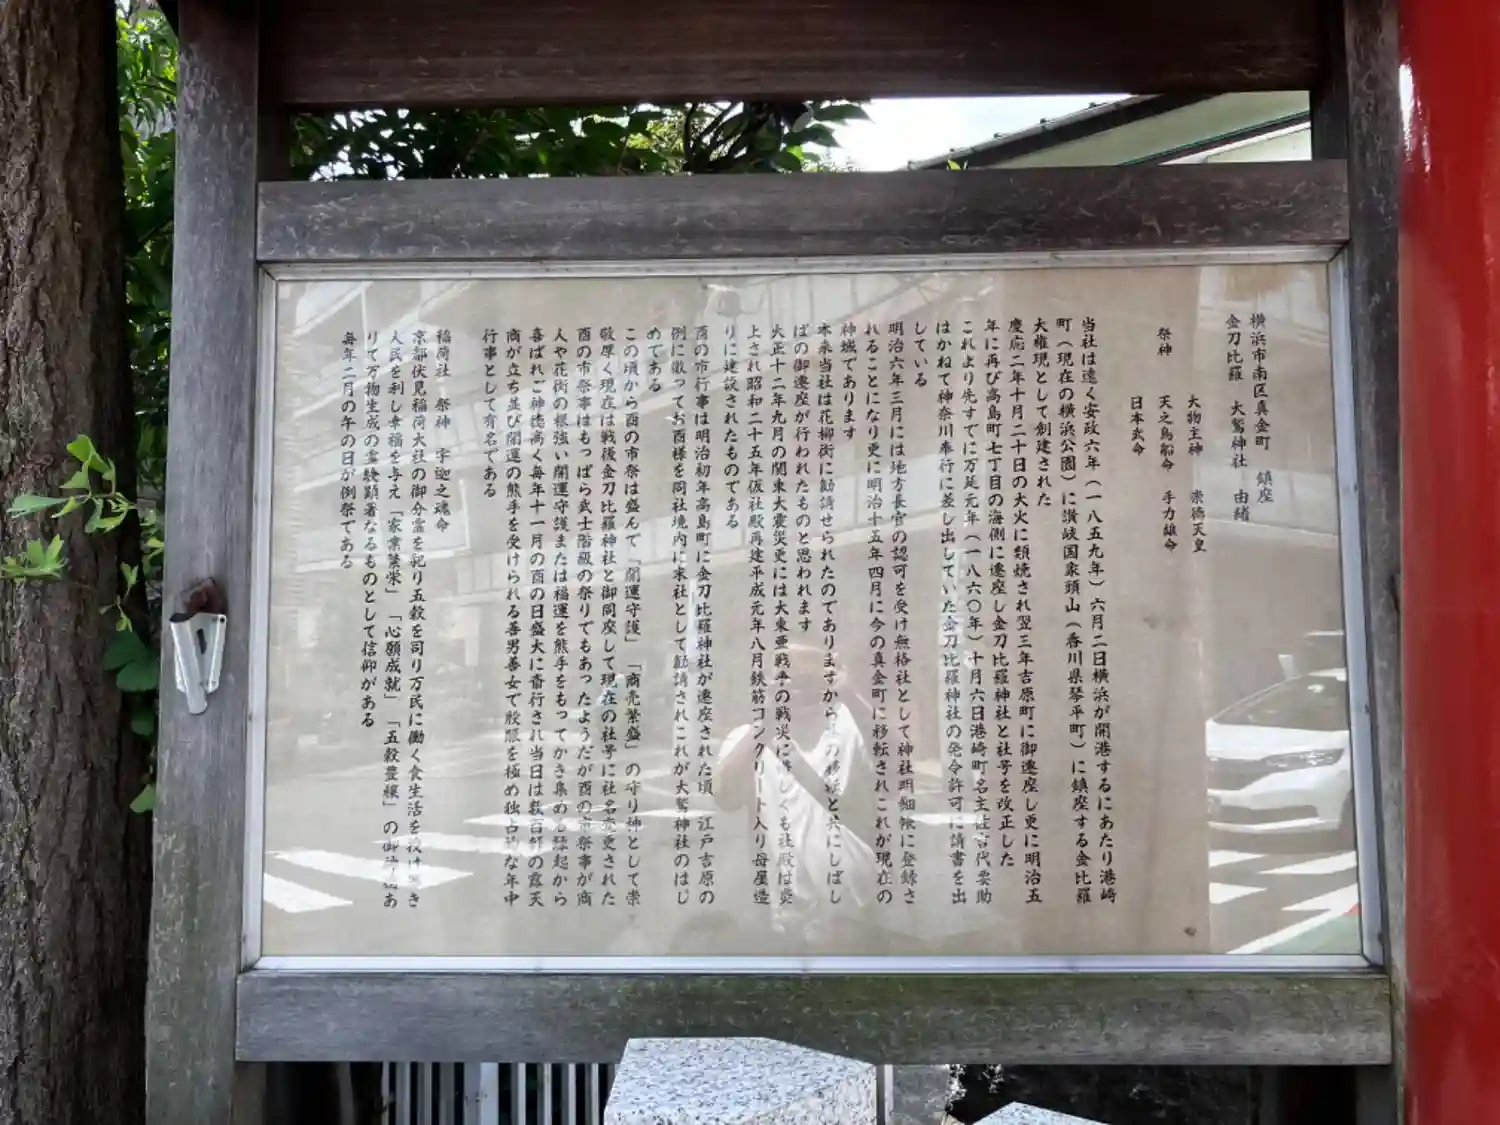 横浜市南区真金町 鎮座
金刀比羅 大鷲神社 由緒
大物主神 崇徳天皇
祭神 天之鳥船命 手力雄命
日本武命
当社は遠く安政六年(一八五九年)六月二日横浜が開港するにあたり港崎
町(現在の横浜公園)に讃岐国象頭山(香川県琴平町)に鎮座する金比羅
大権現として創建された
慶応二年十月二十日の大火に類焼され翌三年吉原町に御遷座し更に明治五
年に再び高島町七丁目の海側に遷座し金刀比羅神社と社号を改正した
これより先すでに万延元年(一八六〇年)十月六日港崎町名主佐吉代要助
はかねて神奈川奉行に差し出していた金刀比羅神社の発令許可に請書を出
している
明治六年三月には地方長官の認可を受け無格社として神社明細帳に登録さ
れることになり更に明治十五年四月に今の真金町に移転されこれが現在の
神域であります
本来当社は花柳街に勧請せられたのでありますから の移転と共にしばし
ばの御遷座が行われたものと思われます
大正十二年九月の関東大震災更には大東亜戦争の戦災に惜しくも社殿は炎
上され昭和二十五年仮社殿再建平成元年八月鉄筋コンクリート入り母屋造
りに建設されたものである
酉の市行事は明治初年高島町に金刀比羅神社が遷座された頃 江戸吉原の
例に倣ってお酉様を同社境内に末社として勧請されこれが大鷲神社のはじ
めである
この頃から酉の市祭は盛んで「開運守護」「商売繁盛」の守り神として崇
敬厚く現在は戦後金刀比羅神社と御同座して現在の社号に社名変更された
酉の市祭事はもっぱら武士階級の祭りでもあったようだが酉の市祭事が商
人や花街の根強い開運守護または福運を熊手をもってかき集める縁起から
喜ばれご神徳高く毎年十一月の酉の日盛大に斎行され当日は数百軒の露天
商が立ち並び開運の熊手を受けられる善男善女で殷賑を極め独占的な年中
行事として有名である
稲荷社 祭神 宇迦之魂命
京都伏見稲荷大社の御分霊を祀り五穀を司り万民に働く食生活を授け
人民を利し幸福を与え「家業繁栄」「心願成就」「五穀豊穣」の御神徳あ
りて万物生成の霊験顕著なるものとして信仰がある
毎年二月の午の日が例祭である